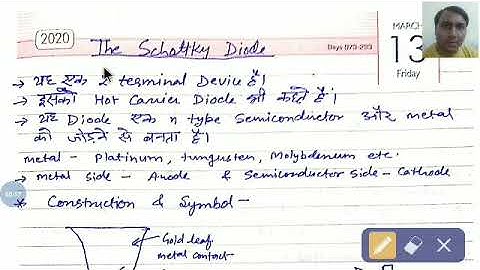 2020
The Schottky Diode
Days 073-293
MARCH
13
Friday
→ यह एक 2 terminal Device है।
→ इसको Hot Carrier Diode भी कहते हैं।
→ यह Diode एक n type Semiconductor और metal
को जोड़ने से बनता है।
metal - Platinum, tungusten, Molybdenum etc.
→ metal side - Anode & Semiconductor side - Cathode
* Construction & Symbol -
Gold leaf
metal contact